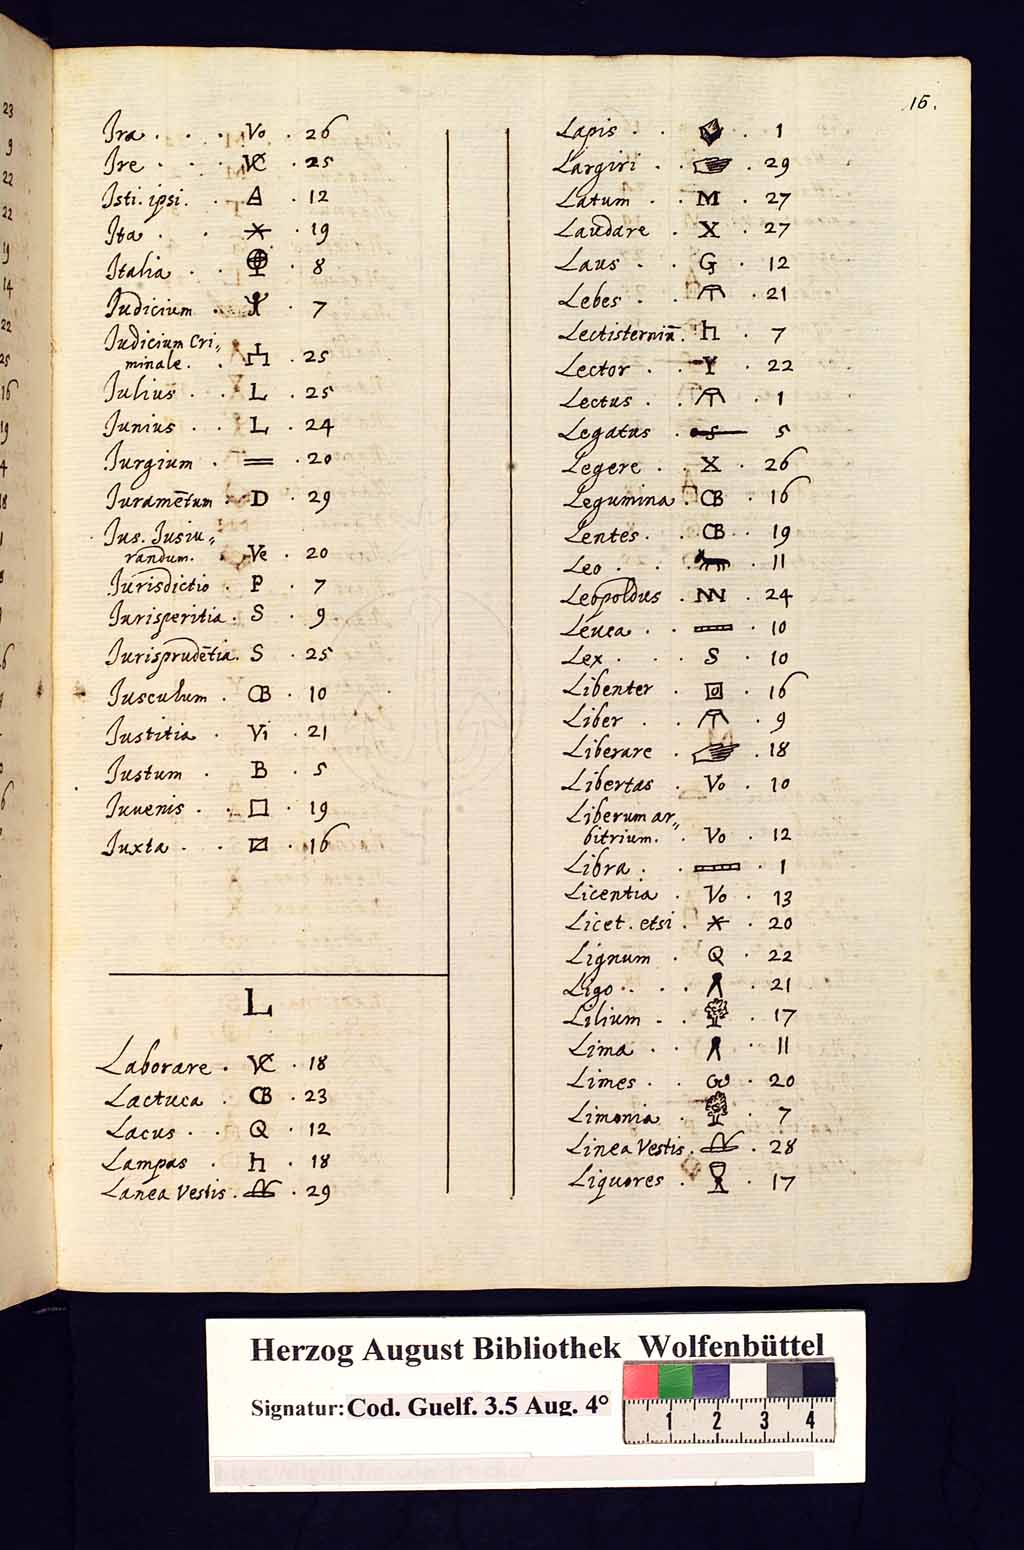 16.
Ira . . . Vo . 26
Ire . . . VC . 25
Isti. ipsi. . A . 12
Ita . . . 19
Italia . . . 8
Iudicium . . 7
Iudicium Cri⸗
minale. . . 25
Iulius . . L . 25
Iunius . . L . 24
Iurgium . . 20
Iuramētum . D . 29
Ius. Iusiu⸗
randum. . Ve . 20
Iurisdictio . P . 7
Iurisperitia . S . 9
Iurisprudētia. S . 25
Iusculum . CB . 10
Iustitia . Vi . 21
Iustum . B . 5
Iuuenis . . □ . 19
Iuxta . . . 16
L
Laborare . VC . 18
Lactuca . CB . 23
Lacus . . Q . 12
Lampas . h . 18
Lanea Vestis . . 29
Lapis . . . 1
Largiri . . . 29
Latum . . M . 27
Laudare . X . 27
Laus . . G . 12
Lebes . . . 21
Lectisterniū . h . 7
Lector . . Y . 22
Lectus . . . 1
Legatus . S 5
Legere . X . 26
Legumina . CB . 16
Lentes . . CB . 19
Leo . . . 11
Leopoldus . NN . 24
Leuca . . . 10
Lex . . . S . 10
Libenter . . 16
Liber . . . 9
Liberare . . 18
Libertas . Vo . 10
Liberum ar⸗
bitrium. . Vo . 12
Libra . . . 1
Licentia . Vo . 13
Licet. etsi . . 20
Lignum . Q . 22
Ligo . . . 21
Lilium . . . 17
Lima . . . 11
Limes . . . 20
Limonia . . 7
Linea Vestis . . 28
Liquores . . 17
23
9
22
22
19
14
22
25
16
19
4
18
Herzog August Bibliothek Wolfenbüttel
Signatur: Cod. Guelf. 3.5 Aug. 4°
1 2 3 4